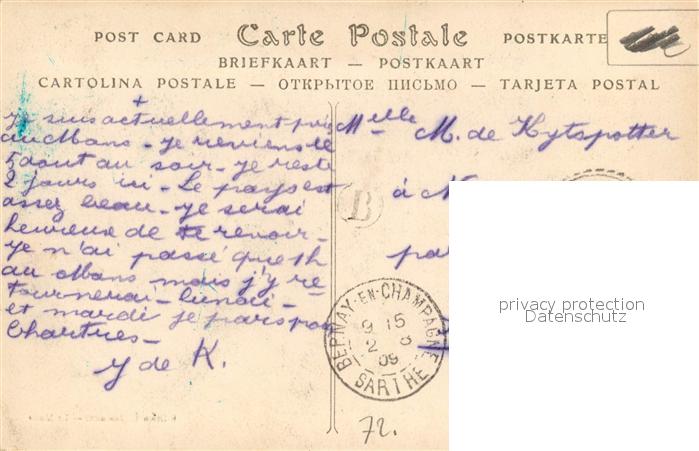 POST CARD Carte Postale POSTKARTE
BRIEFKAART — POSTKAART
CARTOLINA POSTALE — ОТКРЫТОЕ ПИСЬМО — TARJETA POSTAL
+
Je suis actuellement près
au Mans - je reviens le
5 août au soir - je reste
2 jours ici - Le pays est
assez beau - je serai
heureux de te revoir -
je n'ai passé que 1h
au Mans mais j'y re-
tournerai - lundi -
et mardi je pars pour
Chartres -
Y de K.
Melle M. de Kytspotter
à
B
BERNAY-EN-CHAMPAGNE
9 15
2 8
09
SARTHE
72.
privacy protection
Datenschutz